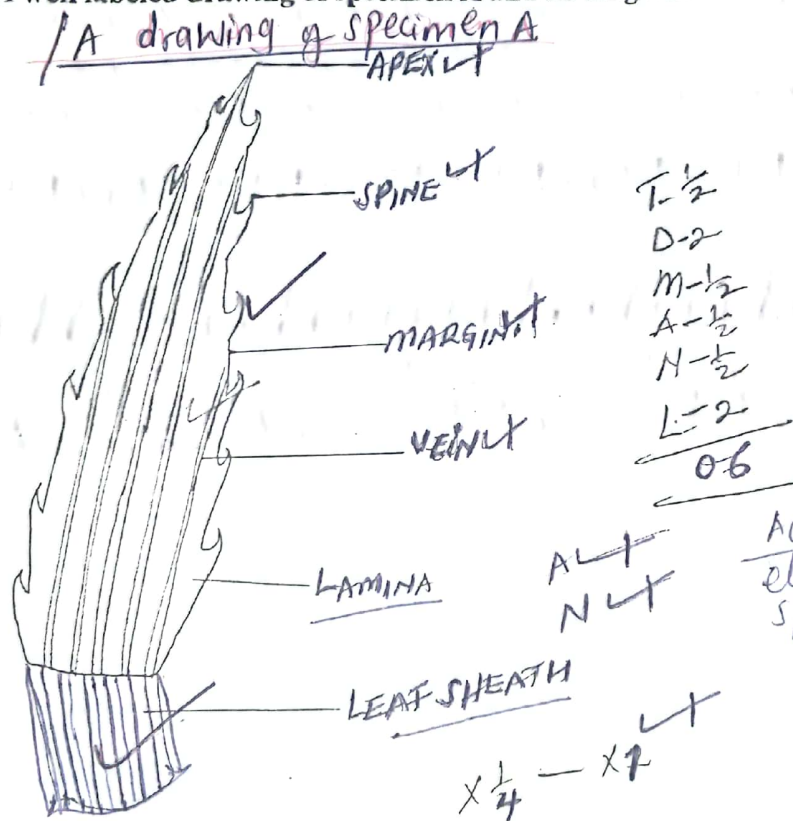 A drawing of specimen A
APEX
SPINE
MARGIN
VEIN
LAMINA
LEAF SHEATH
T-½
D-2
M-½
A-½
N-½
L-2
06
A
N
X ¼ — X1